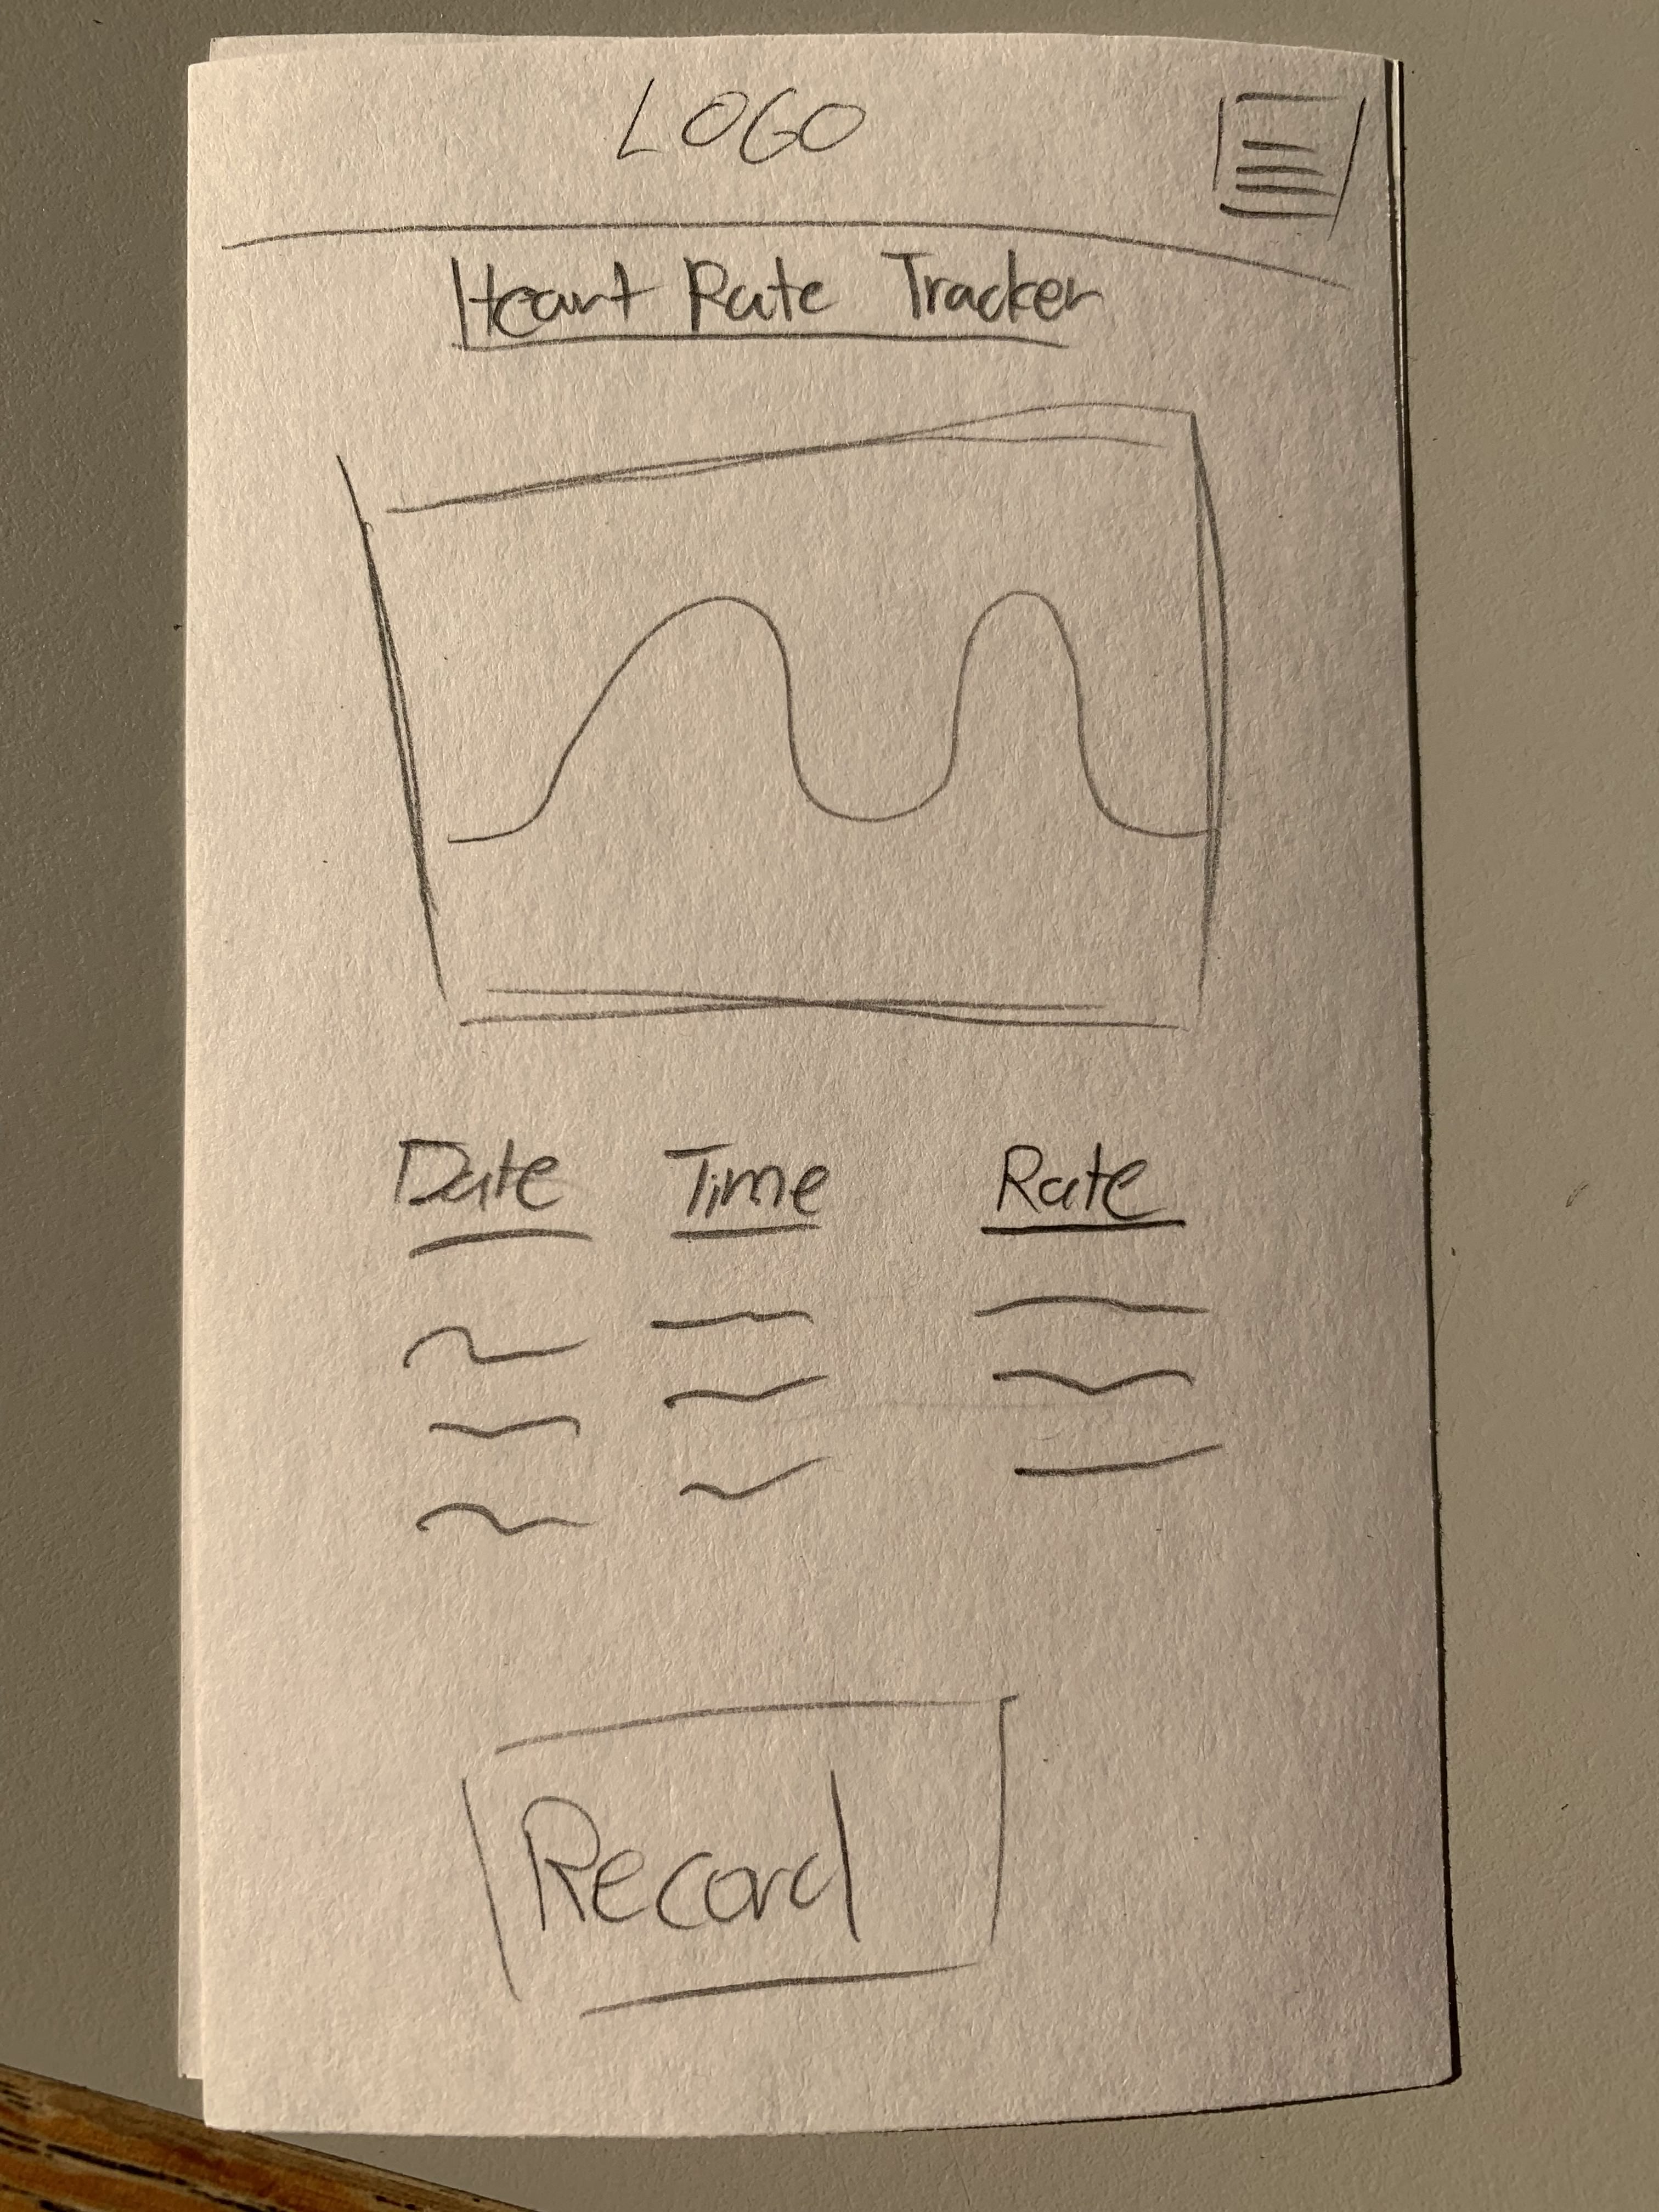 LOGO
Heart Rate Tracker
Date Time Rate
Record